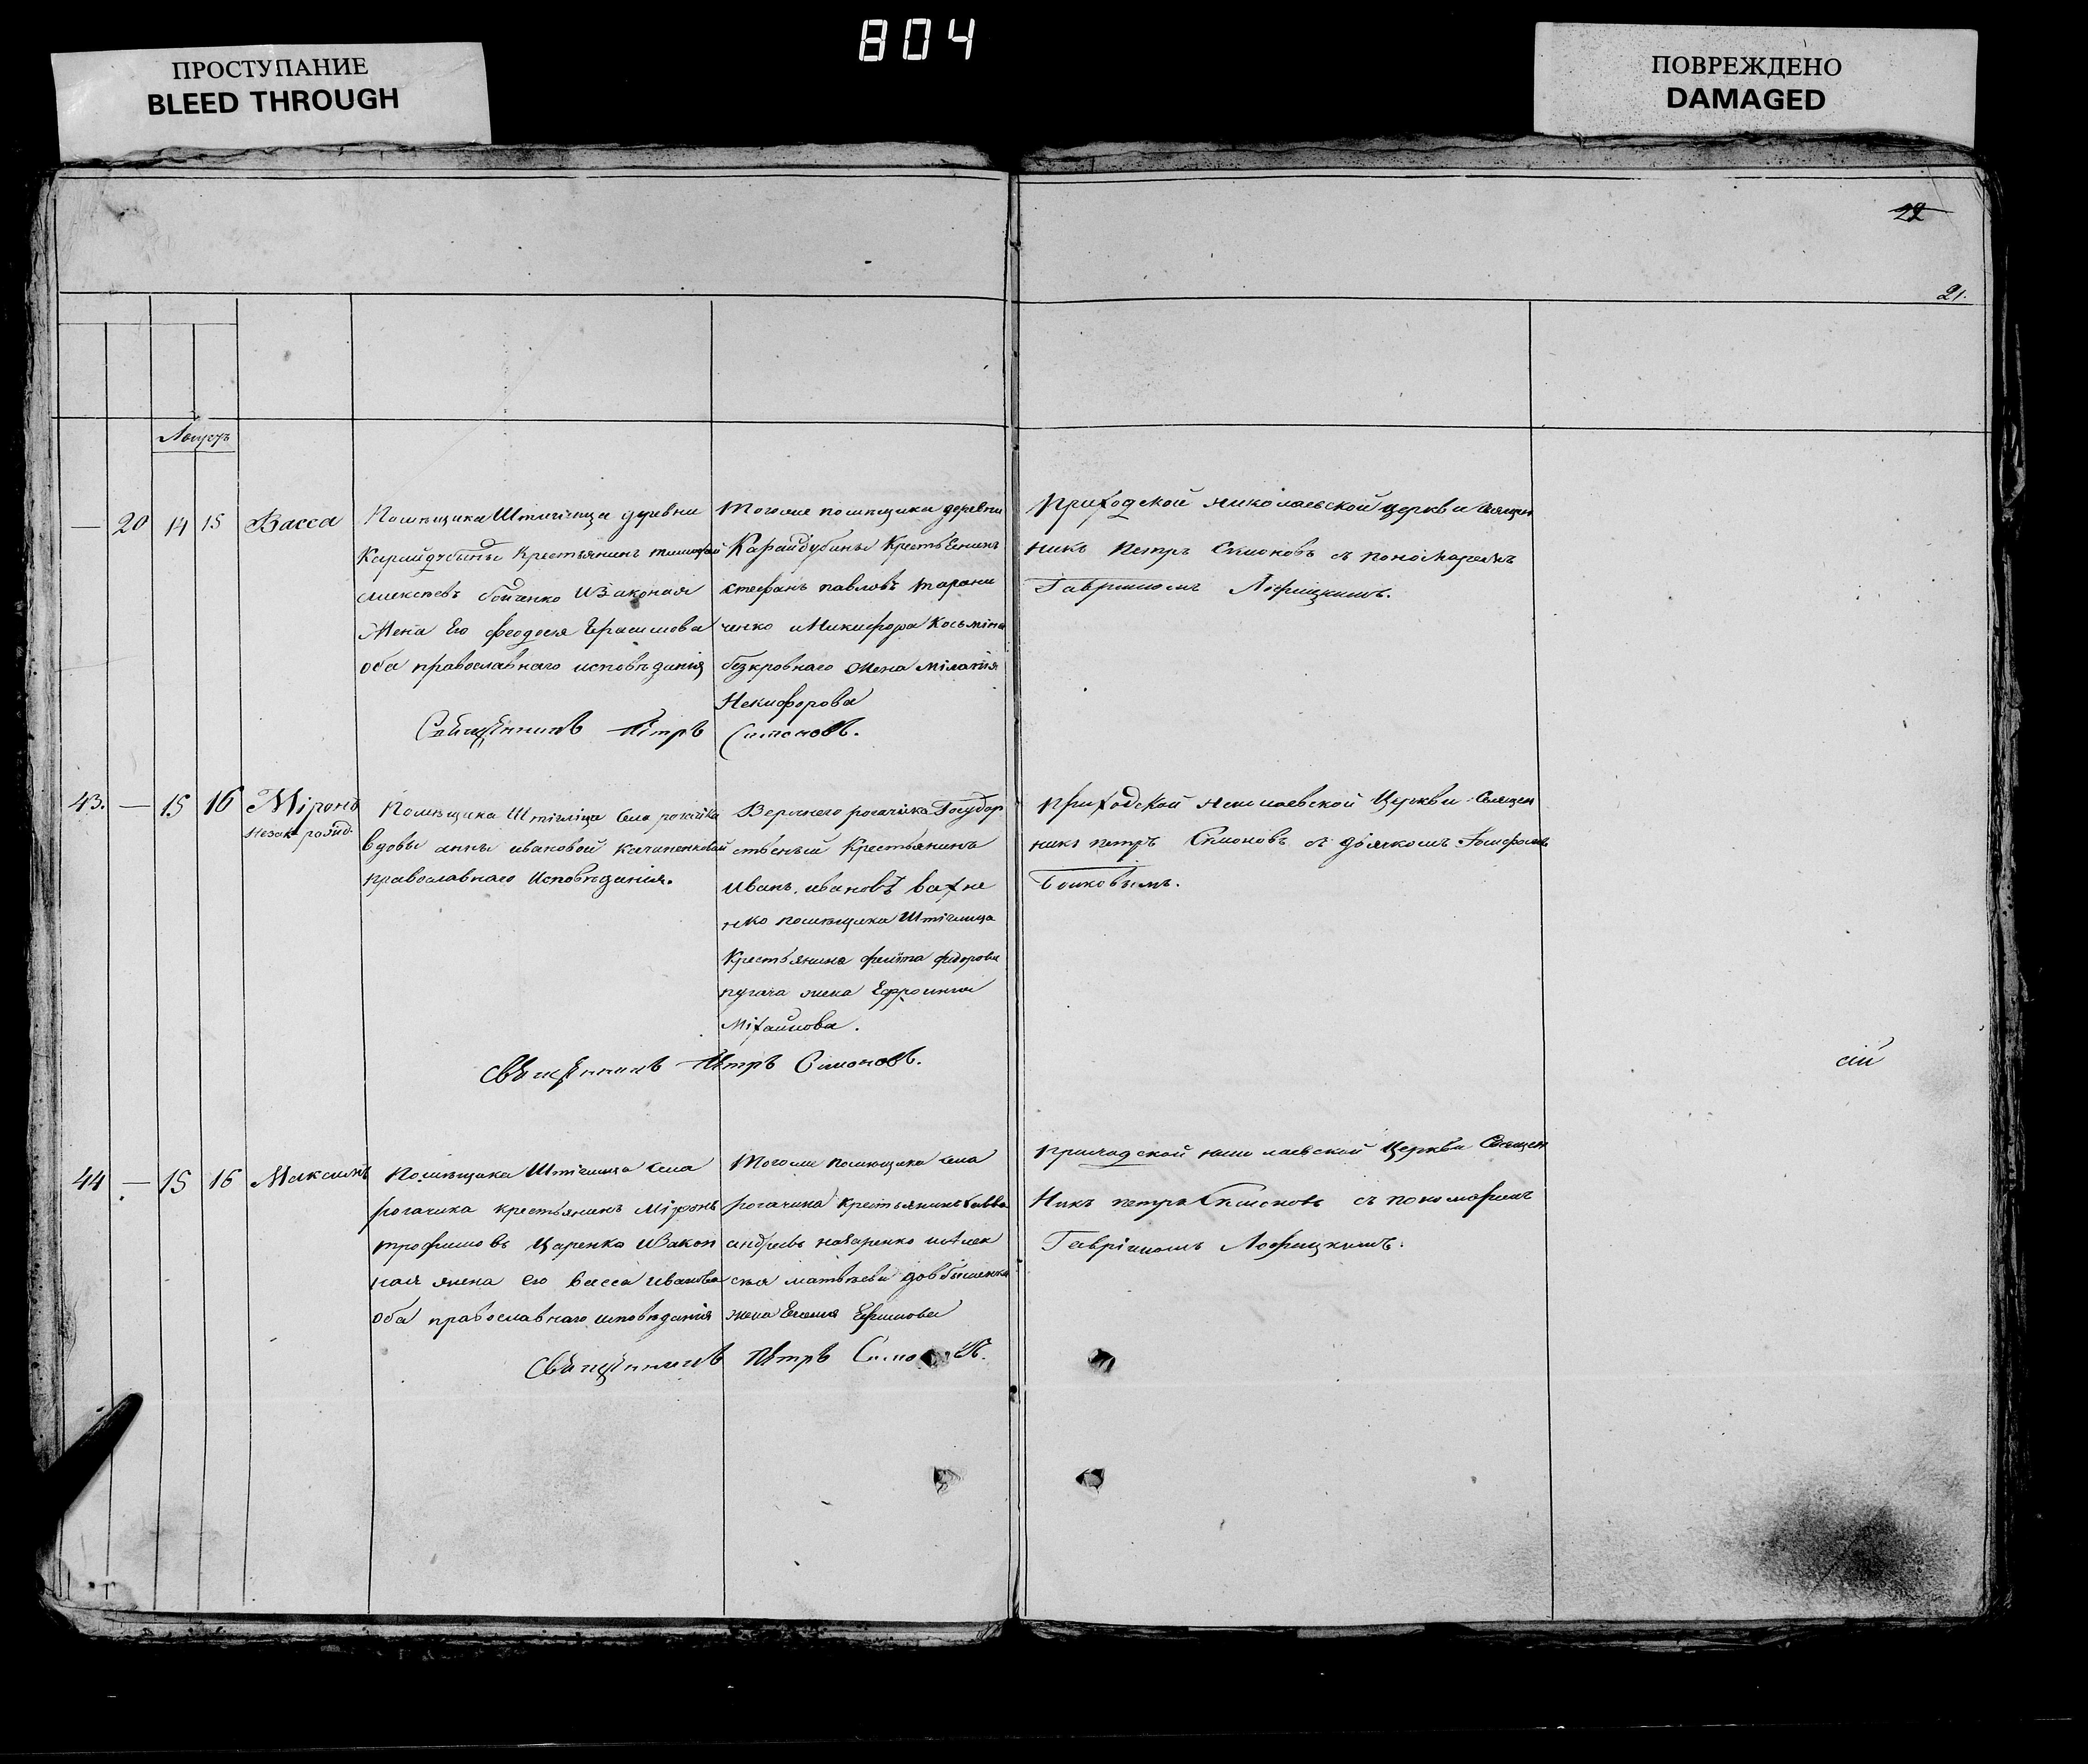 804
ПРОСТУПАНИЕ
BLEED THROUGH
ПОВРЕЖДЕНО
DAMAGED
22
21.
Августъ
— 20 14 15 Васса
Помѣщика Штиглица деревни
Карайдубины Крестьянинъ Тимофей
Алексѣевъ Бойченко И Законая
Жена Его феодосія Герасимова
оба православнаго исповѣданія
Тогоже помѣщика деревни
Карайдубины Крестьенинъ
стефанъ павловъ Тарани
ченко и Никифора Косьміна
безкровнаго Жена Міланія
Некифорова
Священникъ Петръ Симоновъ.
Приходской николаевской церкви Священ
никъ Петръ Симоновъ съ пономаремъ
Гавриломъ
43. — 15 16 Міронъ
Незак. рожд.
Помѣщика Штиглица Села рогачика
вдовы анны ивановой
православнаго Исповѣданія.
Верхнего рогачика Государ
ственый Крестьянинъ
Иванъ ивановъ вахне
нко помѣщика Штіглица
Крестьянина федорова
пугача жена Ефросинія
Міхайлова.
Священникъ Петръ Симоновъ.
приходской николаевской Церкви Священ
никъ петръ Симоновъ съ дьячкомъ Іосифомъ
сій
44 — 15 16 Максимъ
Помѣщика Штіглица села
рогачика крестьянинъ Міронъ
трофимовъ Царенко И Закон
ная жена его васса иванова
оба православнаго исповѣданія
Тогоже помѣщика села
рогачика Крестьянинъ Савва
андреевъ назаренко и Алек
сія матвѣева довбышенка
жена Евгенія Ефимова
Священникъ Петръ Симоновъ.
приходской николаевской Церкви Священ
Никъ петръ Симоновъ съ пономаремъ
Гавріиломъ